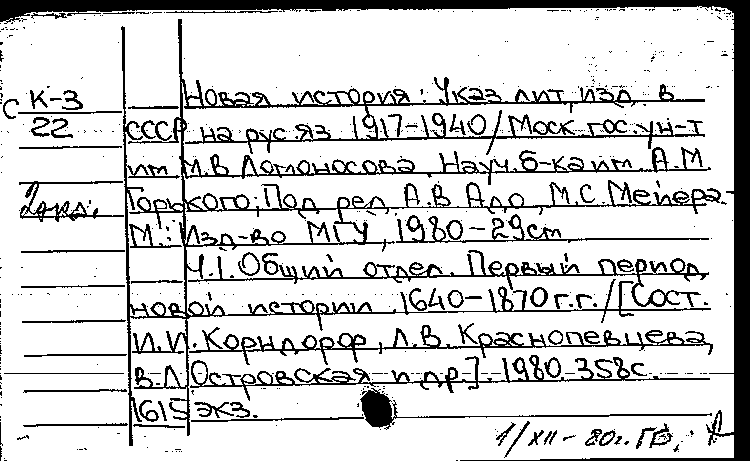 Новая история: Указ. лит, изд. в
С К-3
22
СССР на рус.яз. 1917-1940/Моск. гос. ун-т
им М.В. Ломоносова, Науч. б-ка им. А.М.
Горького; Под ред. А.В. Адо, М.С. Мейера.-
М.: Изд-во МГУ, 1980-29см
Ч.1. Общий отдел. Первый период
новой истории, 1640-1870г.г./[Сост.
И.И. Корндорф, Л.В. Краснопевцева,
В.Л. Островская и др.]. 1980. 358с.
1615 экз.
1/XII-80г. ГБ.